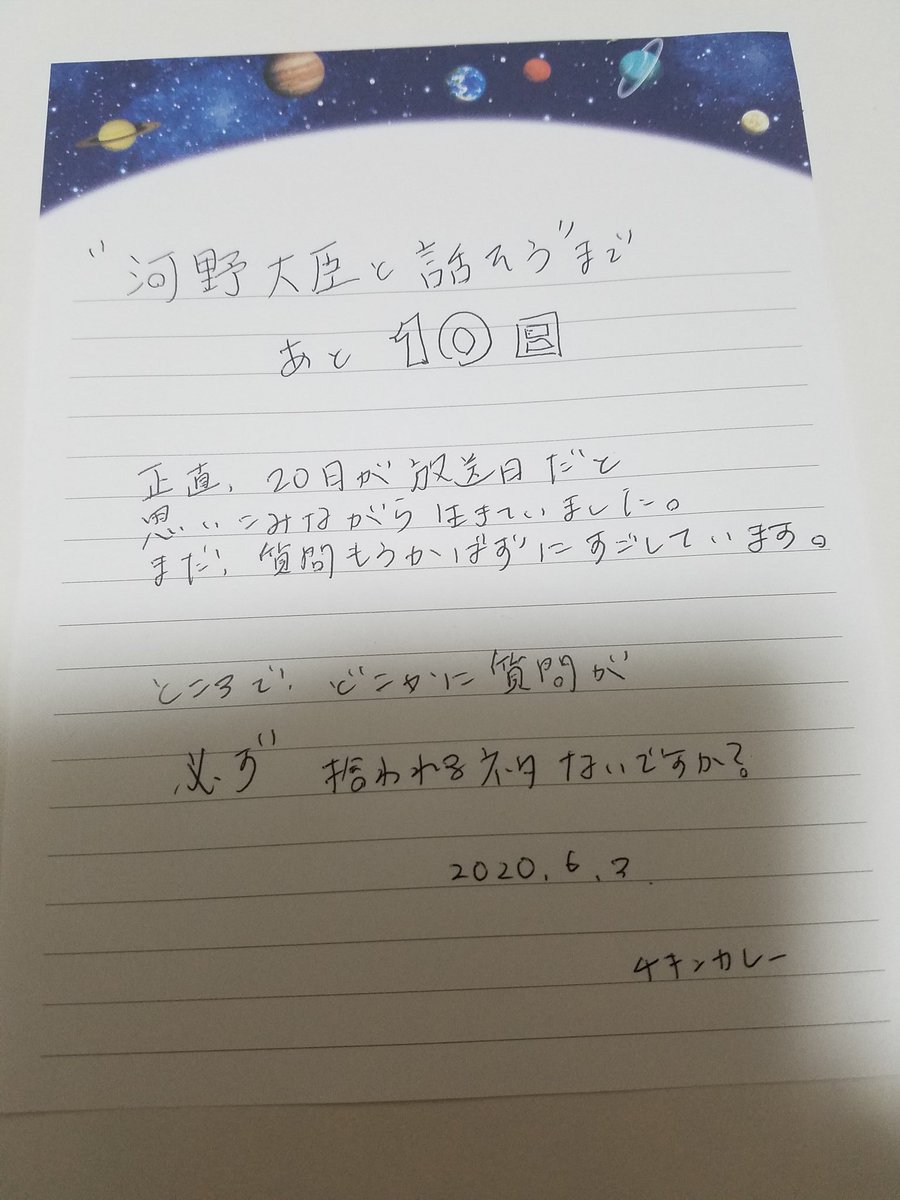 "河野大臣と話そう"まで
あと 10日
正直、20日が放送日だと
思いこみながら生きていました。
まだ、質問もうかばずにすごしています。
ところで、どこかに質問が
必ず 拾われるネタないですか?
2020.6.3
チキンカレー